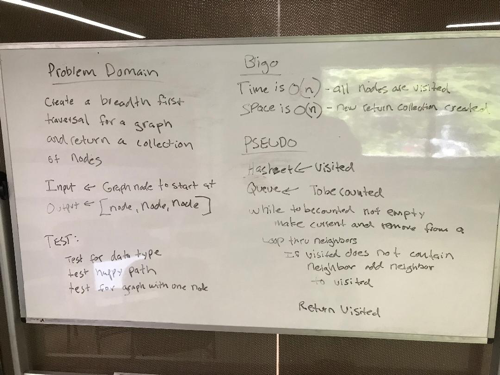 Problem Domain
Create a breadth first
traversal for a graph
and return a collection
of nodes
Input ← Graph node to start at
Output ← [node, Node, Node]
TEST:
Test for data type
test happy path
test for graph with one node
Bigo
Time is O(n) - all nodes are visited
Space is O(n) - new return collection created
PSEUDO
Hashset ← Visited
Queue ← Tobecounted
while tobecounted not empty
make current and remove from q
Loop thru neighbors
if visited does not contain
neighbor add neighbor
to visited
Return Visited